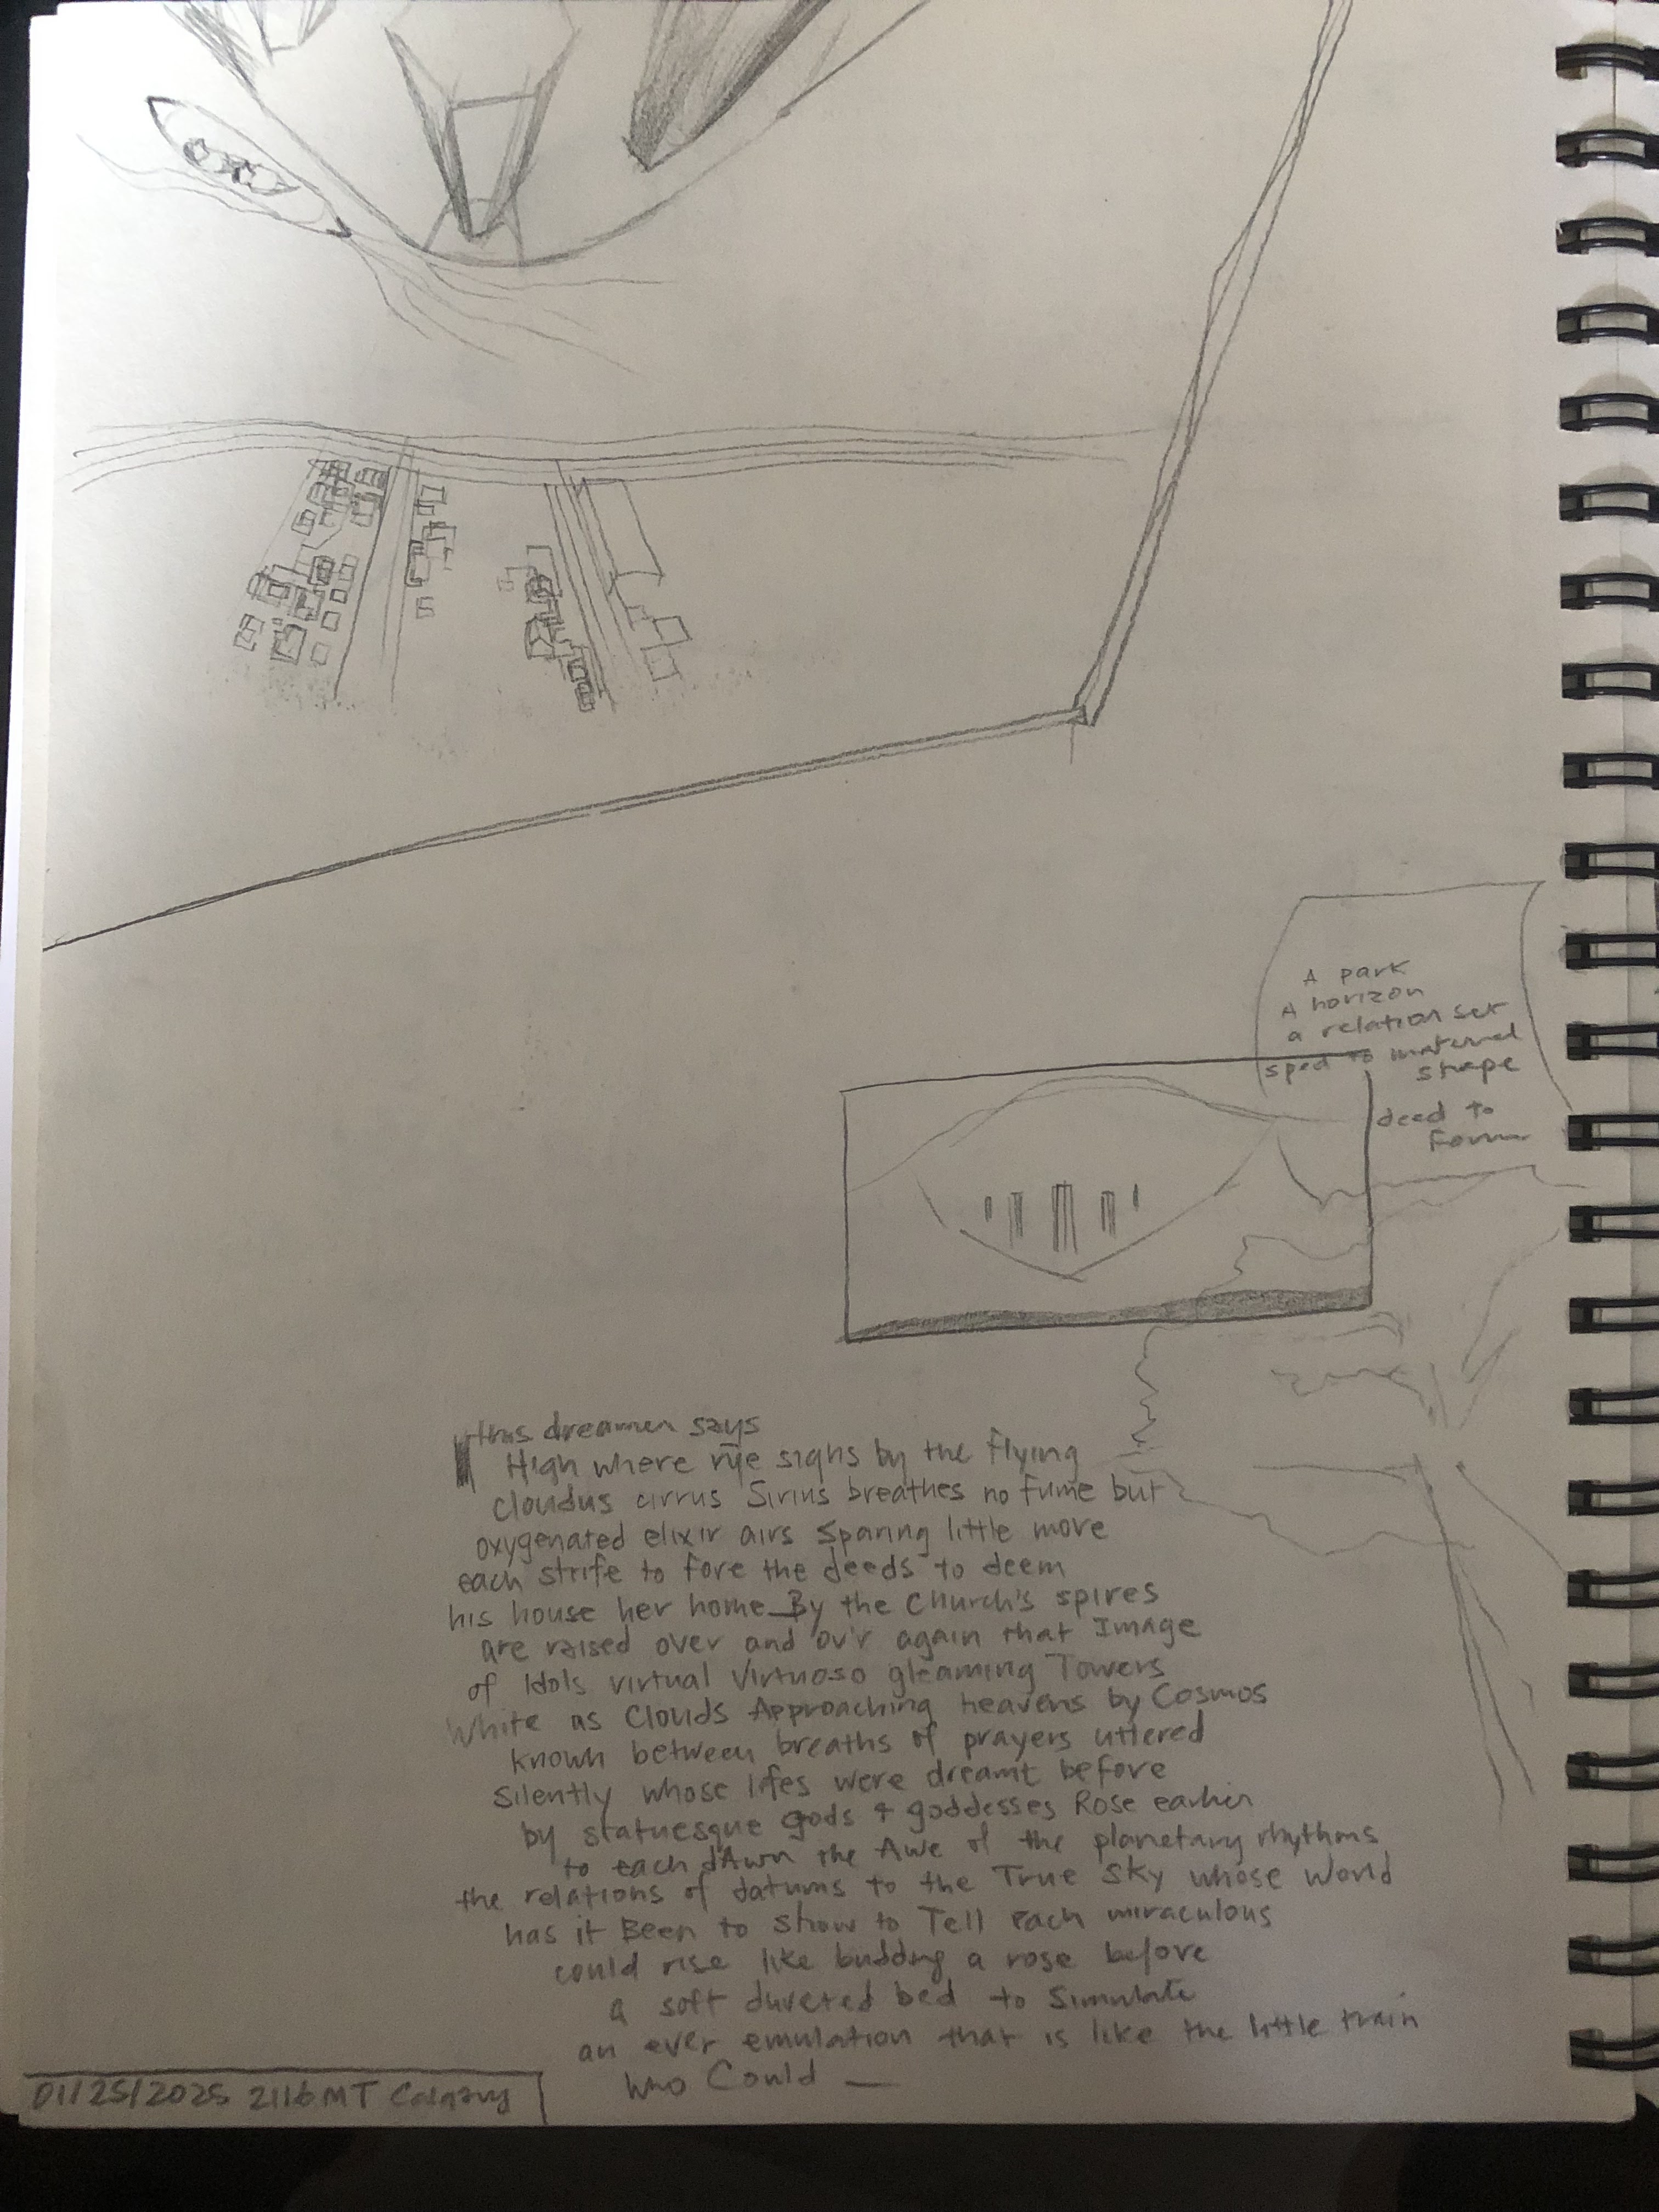 A park
A horizon
a relation set
sped to maternal
shape
deed to
Form
thus dreamer says
High where rye sighs by the flying
cloudus cirrus Sirius breathes no fume but
oxygenated elixir airs sparing little more
each strife to fore the deeds to deem
his house her home_By the Church's spires
are raised over and ov'r again that Image
of Idols virtual Virtuoso gleaming Towers
White as Clouds Approaching heavens by Cosmos
known between breaths of prayers uttered
Silently whose lifes were dreamt before
by statuesque gods & goddesses Rose earlier
to each dAwn the Awe of the planetary rhythms
the relations of datums to the True Sky whose World
has it Been to show to Tell each miraculous
could rise like budding a rose before
a soft duveted bed to Simulate
an ever emulation that is like the little train
who Could —
01/25/2025 2116MT Calgary